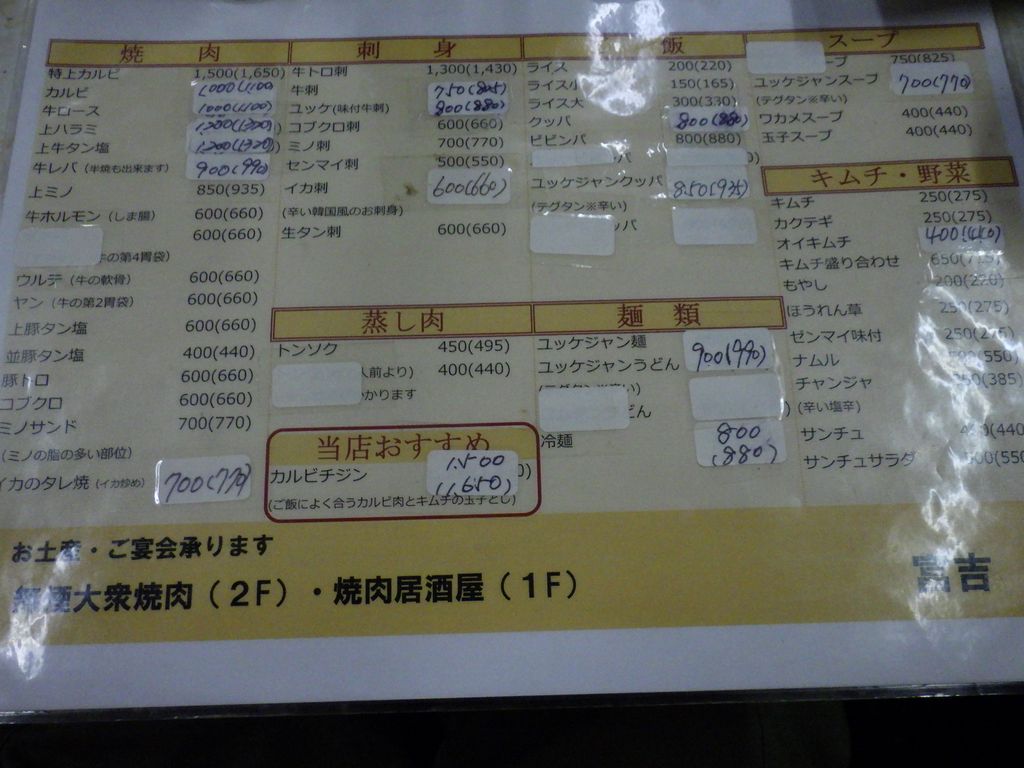 焼肉
特上カルビ 1,500(1,650)
カルビ 1,000(1,100)
牛ロース 1,000(1,100)
上ハラミ 1,200(1,320)
上牛タン塩 1,200(1,320)
牛レバ (半焼も出来ます) 900(990)
上ミノ 850(935)
牛ホルモン (しま腸) 600(660)
牛の第4胃袋) 600(660)
ウルテ (牛の軟骨) 600(660)
ヤン (牛の第2胃袋) 600(660)
上豚タン塩 600(660)
並豚タン塩 400(440)
豚トロ 600(660)
コブクロ 600(660)
ミノサンド 700(770)
(ミノの脂の多い部位)
イカのタレ焼 (イカ炒め) 700(770)
刺身
牛トロ刺 1,300(1,430)
牛刺 750(825)
ユッケ(味付牛刺) 800(880)
コブクロ刺 600(660)
ミノ刺 700(770)
センマイ刺 500(550)
イカ刺 600(660)
(辛い韓国風のお刺身)
生タン刺 600(660)
蒸し肉
トンソク 450(495)
人前より) 400(440)
かかります
当店おすすめ
カルビチジン 1,500(1,650)
(ご飯によく合うカルビ肉とキムチの玉子とじ)
飯
ライス 200(220)
ライス小 150(165)
ライス大 300(330)
クッパ 800(880)
ビビンパ 800(880)
ユッケジャンクッパ 850(935)
(テグタン※辛い)
パ
麺類
ユッケジャン麺 900(990)
ユッケジャンうどん
(テグタン※辛い)
どん
冷麺 800(880)
スープ
ープ 750(825)
ユッケジャンスープ 700(770)
(テグタン※辛い)
ワカメスープ 400(440)
玉子スープ 400(440)
キムチ・野菜
キムチ 250(275)
カクテギ 250(275)
オイキムチ 400(440)
キムチ盛り合わせ 650(715)
もやし 200(220)
ほうれん草 250(275)
ゼンマイ味付 250(275)
ナムル 500(550)
チャンジャ 350(385)
(辛い塩辛)
サンチュ 400(440
サンチュサラダ 500(550
お土産・ご宴会承ります
無煙大衆焼肉(2F)・焼肉居酒屋(1F)
宮吉